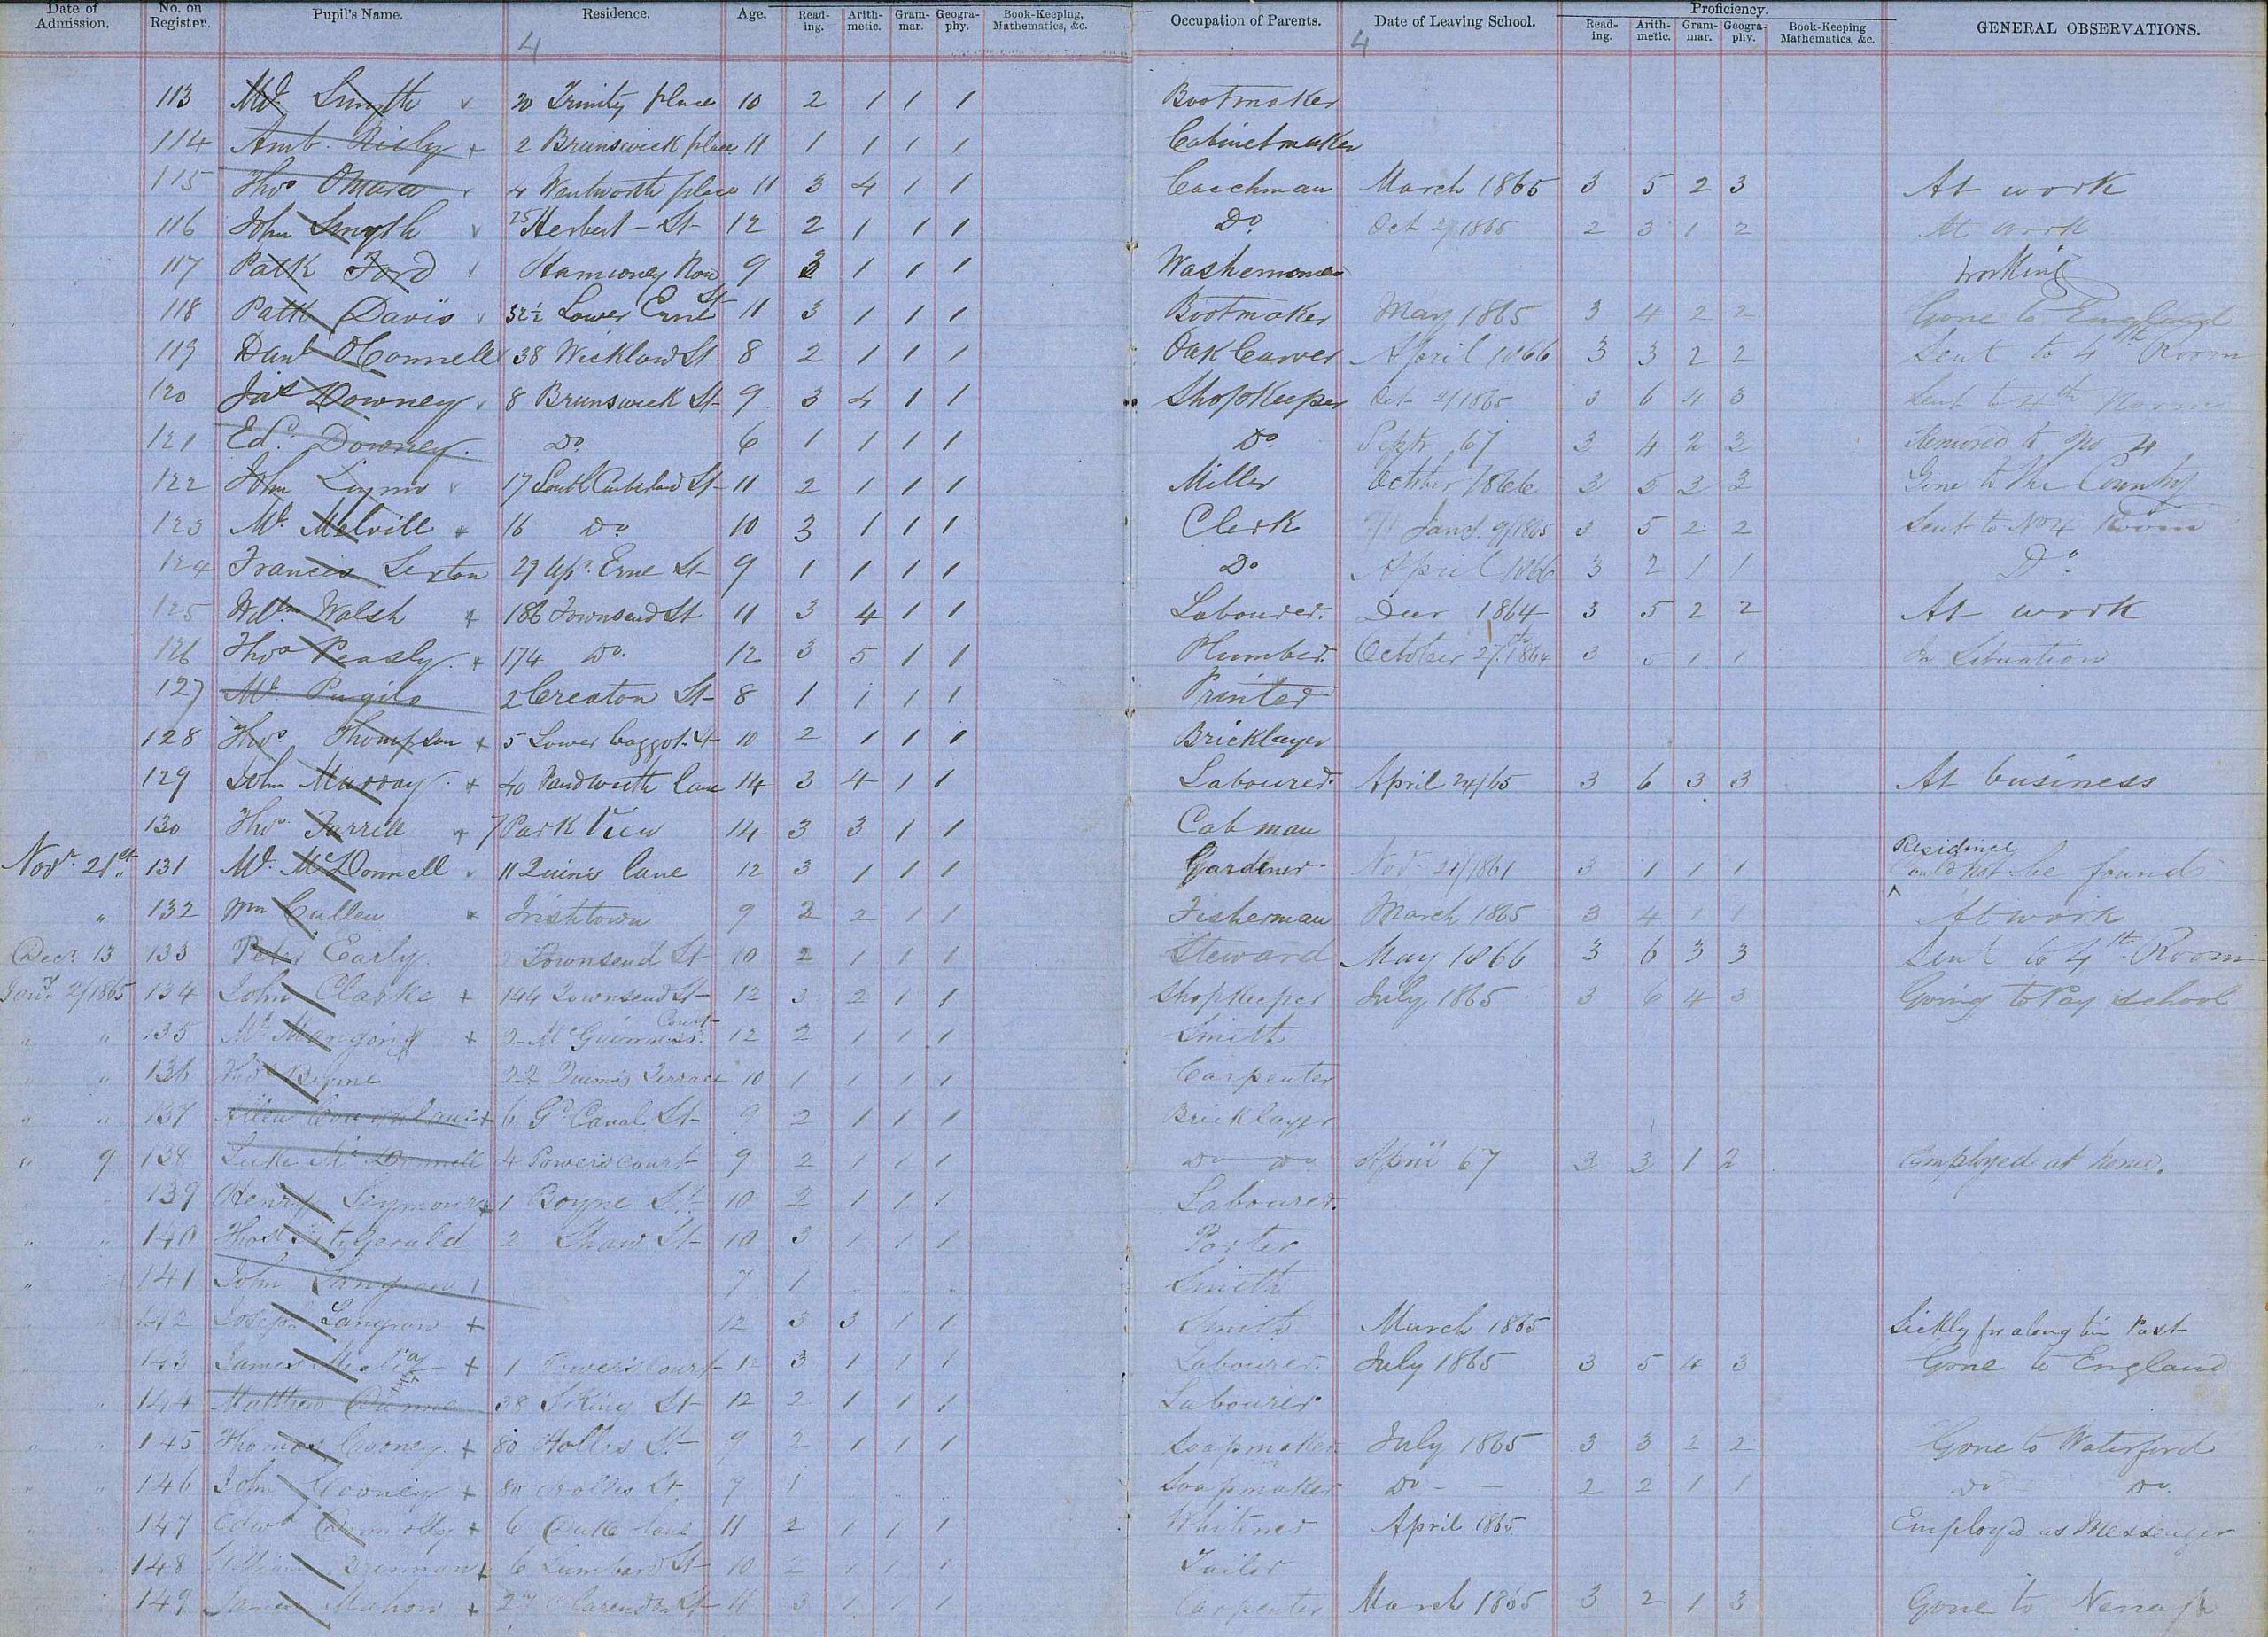 Date of Admission. No. on Register. Pupil's Name. Residence. Age. Read-ing. Arith-metic. Gram-mar. Geogra-phy. Book-Keeping, Mathematics, &c. Occupation of Parents. Date of Leaving School. Proficiency. Read-ing. Arith-metic. Gram-mar. Geogra-phy. Book-Keeping Mathematics, &c. GENERAL OBSERVATIONS.
4 4
113 Ml. Smyth 20 Trinity place 10 2 1 1 1 Bootmaker
114 Amb. Riely 2 Brunswick place 11 1 1 1 1 Cabinetmaker
115 Thos OMara 4 Wentworth place 11 3 4 1 1 Coachman March 1865 3 5 2 3 At work
116 John Smyth 25 Herbert St 12 2 1 1 1 Do Oct 2/1865 2 3 1 2 At work
117 Patk Ford Row 9 3 1 1 1 Washerwoman working
118 Patk Davis 32½ Lower Erne St 11 3 1 1 1 Bootmaker May 1865 3 4 2 2 Gone to England
119 Danl OConnell 38 Wicklow St 8 2 1 1 1 Oak Carver April 1866 3 3 2 2 Sent to 4th Room
120 Jas Downey 8 Brunswick St 9 3 4 1 1 Shopkeeper Oct 2/1865 3 6 4 3 Sent to 4th Room
121 Ed. Downey Do 6 1 1 1 1 Do Septr 67 3 4 2 3 Removed to No 4
122 John 17 South Cumberland St 11 2 1 1 1 Miller October 1866 3 5 3 3 Gone to the Country
123 Ml. Melvill 16 Do 10 3 1 1 1 Clerk Jany. 9/1865 3 5 2 2 Sent to No 4 Room
124 Francis Sexton 29 Upr. Erne St 9 1 1 1 1 Do April 1866 3 2 1 1 Do
125 Willm Walsh 186 Townsend St 11 3 4 1 1 Labourer. Decr 1864 3 5 2 2 At work
126 Thos Peasly 174 Do. 12 3 5 1 1 Plumber. October 27th 1864 3 5 1 1 In Situation
127 Ml. Pugilo 2 Creaton St 8 1 1 1 1 Printer
128 Thos Thompson 5 Lower baggot St 10 2 1 1 1 Bricklayer
129 John Murray 40 lane 14 3 4 1 1 Labourer. April 24/65 3 6 3 3 At business
130 Thos Farrell 7 Park View 14 3 3 1 1 Cabman
Novr. 21st 131 Ml. McDonnell 11 Quinns lane 12 3 1 1 1 Gardener Novr 21/1861 3 1 1 1 Residence Could not be found
" 132 Wm Cullen Irishtown 9 2 2 1 1 Fisherman March 1865 3 4 1 1 At work
Decr. 13 133 Peter Early Townsend St 10 2 1 1 1 Steward May 1866 3 6 3 3 Sent to 4th Room
Jany. 2/1865 134 John Clarke 144 Townsend St 12 3 2 1 1 Shopkeeper July 1865 3 6 4 3 Going to Pay school
" " 135 Ml 2 McGuinness Court 12 2 1 1 1 Smith
" " 136 Thos Byrne 22 Quinns Terrace 10 1 1 1 1 Carpenter
" " 137 Allen 6 Gd Canal St 9 2 1 1 1 Bricklayer
" 9 138 Luke McDonnell 4 Powerscourt 9 2 1 1 1 Do Do April 67 3 3 1 2 Employed at home.
139 Henry Seymour 1 Boyne St. 10 2 1 1 1 Labourer.
" " 140 Thos FitzGerald 2 Shaw St 10 3 1 1 1 Porter
" 141 John Langran 7 1 Smith
142 Joseph Langran 12 3 3 1 1 Smith March 1865 Sickly for along tim Past
143 James 1 Powerscourt 12 3 1 1 1 Labourer. July 1865 3 5 4 3 Gone to England
144 Matthew 38 S King St 12 2 1 1 1 Labourer
" " 145 Thomas Cooney 80 Holles St 9 2 1 1 1 Soapmaker July 1865 3 3 2 2 Gone to Waterford
" " 146 John Cooney 80 Holles St 7 1 Soapmaker Do 2 2 1 1 Do Do.
147 Edwd 6 Duke lane 11 2 1 1 1 Whitener April 1865 Employd as Messenger
148 William Brennan 6 Lumbard St 10 2 1 1 1 Tailor
149 James Mahon Clarendon St 11 3 1 1 1 Carpenter March 1865 3 2 1 3 Gone to Nenagh